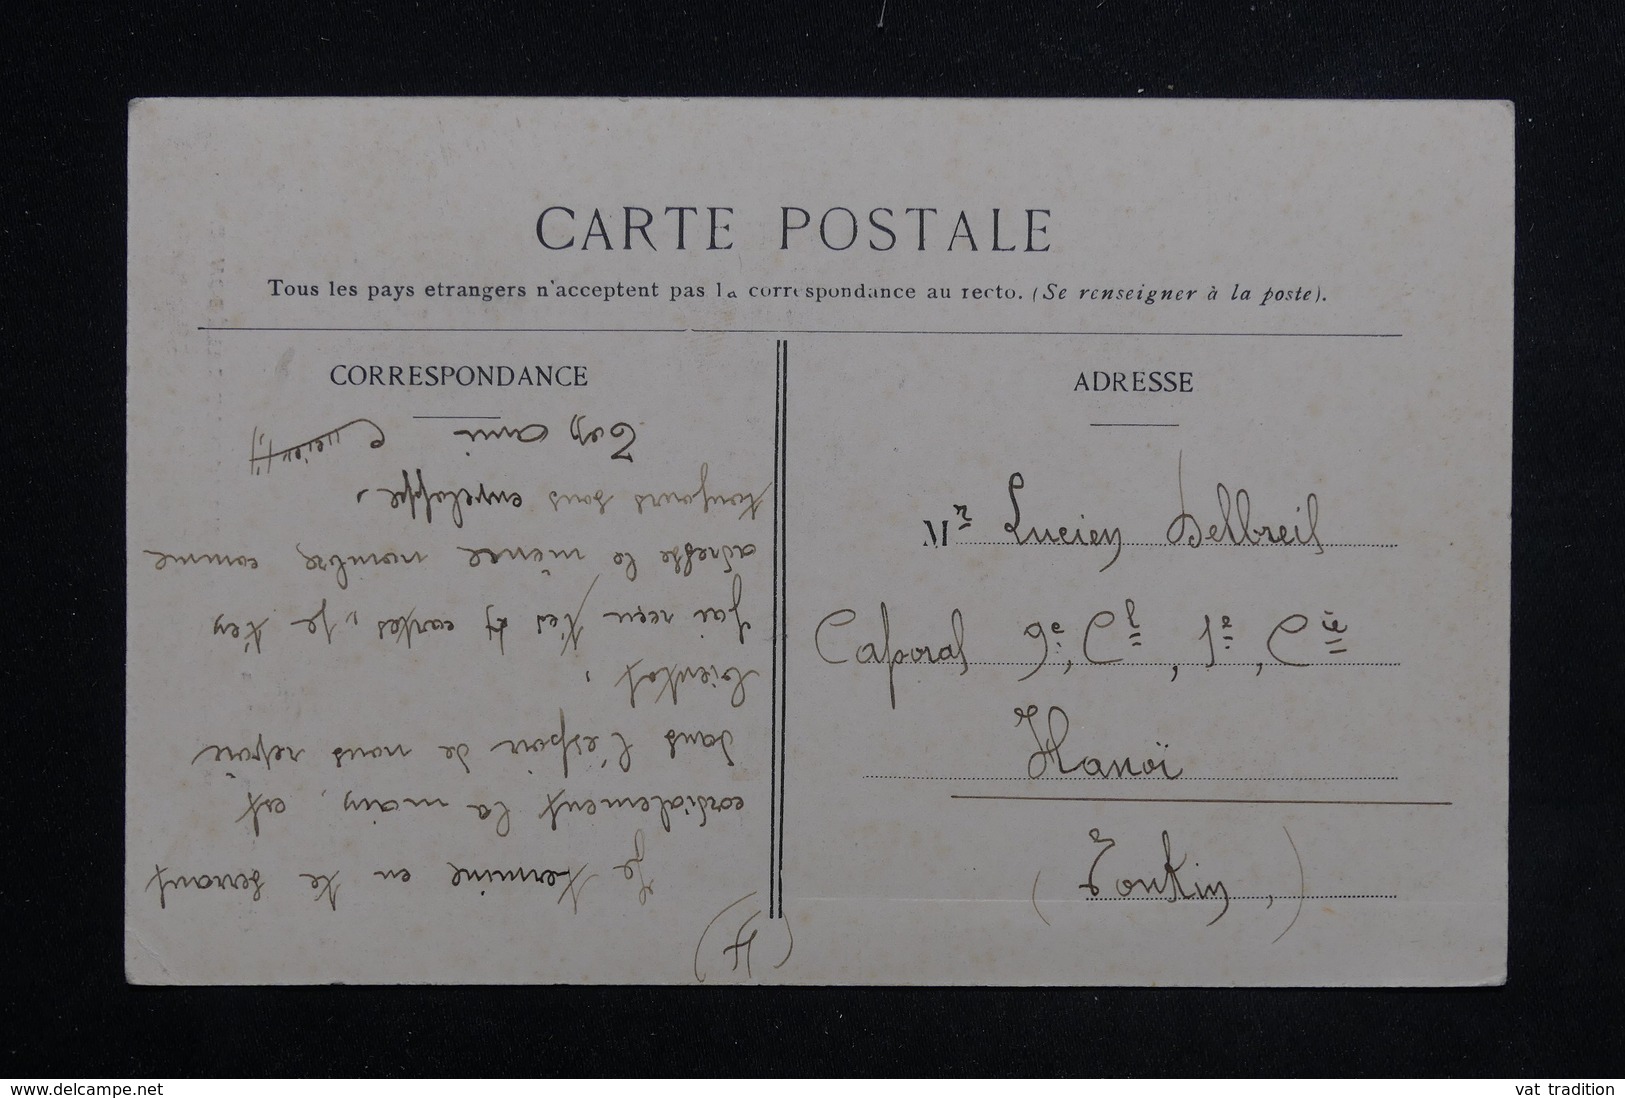 CARTE POSTALE
Tous les pays etrangers n'acceptent pas la correspondance au recto. (Se renseigner à la poste).
CORRESPONDANCE
(4)
Je termine en te serrant
cordialement la main, est
dans l'espoir de nous revoir
bientot,
J'ai reçu t'es 4 cartes, je t'en
adresse le même nombre, comme
toujours sous enveloppe,
Ton ami
ADRESSE
Mr Lucien Delbreil
Caporal 9e, Cl, 1e, Cie
Hanoï
(Tonkin,)
www.delcampe.net
vat tradition